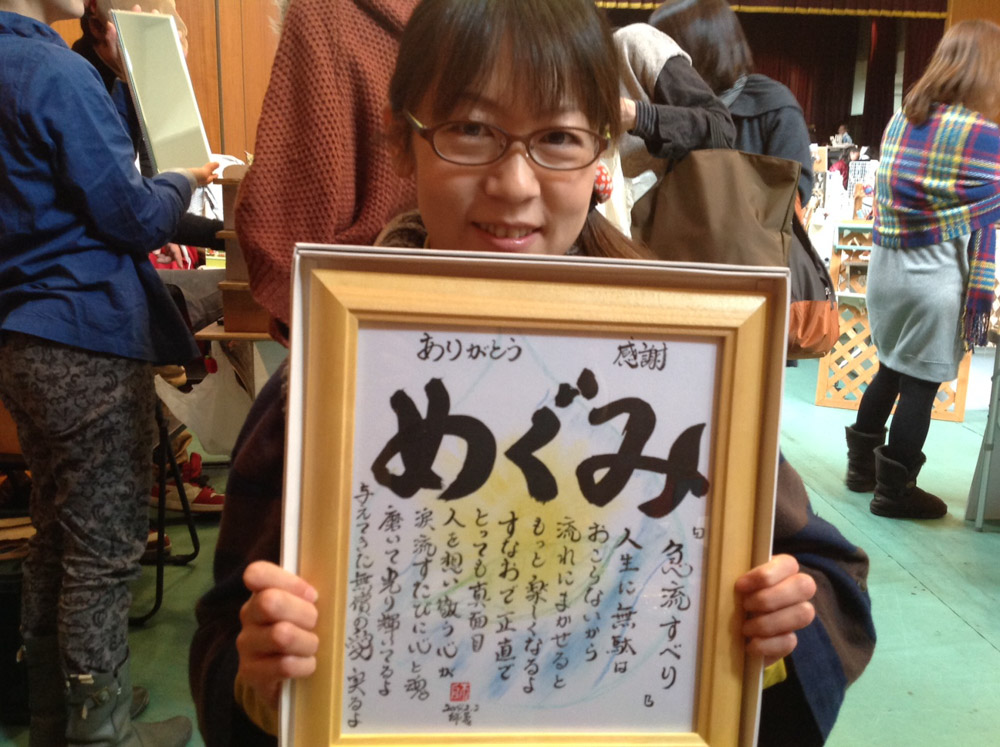 ありがとう
感謝
めぐみ
急流すべり
人生に無駄は
おこらないから
流れにまかせると
もっと楽しくなるよ
すなおで正直で
とっても真面目
人を想い敬う心が
涙流すたびに心と魂
磨いて光り輝いてるよ
与えてきた無償の愛 実るよ